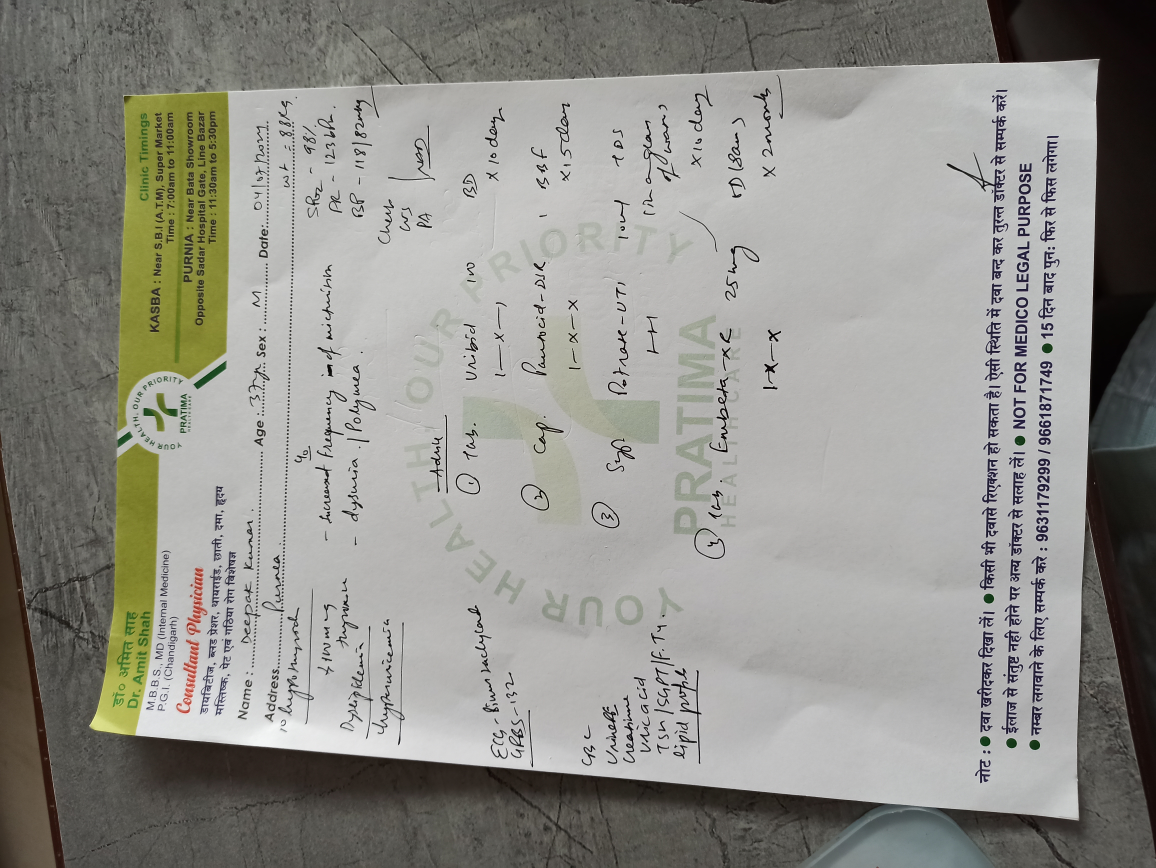 डॉ० अमित साह
Dr. Amit Shah
M.B.B.S., MD (Internal Medicine)
P.G.I. (Chandigarh)
Consultant Physician
डायबिटीज, ब्लड प्रेशर, थायराईड, छाती, दमा, हृदय
मस्तिष्क, पेट एवं गठिया रोग विशेषज्ञ
YOUR HEALTH, OUR PRIORITY
PRATIMA
HEALTH CARE
Clinic Timings
KASBA : Near S.B.I (A.T.M), Super Market
Time : 7:00am to 11:00am
PURNIA : Near Bata Showroom
Opposite Sadar Hospital Gate, Line Bazar
Time : 11:30am to 5:30pm
Name : Deepak Kumar. Age : 37yr. Sex : M Date: 04/07/
Address Purnea. wt = 88kg.
hypothyroid
thyronorm
Dyslipidemia
hyperuricemia
c/o
- Increased frequency of micturition
- dysuria / Polyurea.
SPO2 - 98%
PR - 123b/m
BP - 118/82mmHg
Chest
CVS
PA
ECG - Sinus tachycard
GRBS - 132
CBC
Creatinine
Uric acid
TSH/SGPT/
Lipid profile
Advice
① Tab. Uribid 100 BD
1—x—1 x 10 days
② Cap. Pantocid-DSR 1 BBF
1—x—x x 15 days
③ Syp. Potrate-UTI 10ml TDS
1+1+1 in a glass of water
x 10 days
④ Tab. Embeta-XR 25mg OD (8am)
1-x-x x 2 months
YOUR HEALTH OUR PRIORITY
PRATIMA
HEALTH CARE
नोट : ● दवा खरीदकर दिखा लें। ● किसी भी दवासे रिएक्शन हो सकता है। ऐसी स्थिति में दवा बन्द कर तुरन्त डॉक्टर से सम्पर्क करें।
● ईलाज से संतुष्ट नही होने पर अन्य डॉक्टर से सलाह लें। ● NOT FOR MEDICO LEGAL PURPOSE
● नम्बर लगवाने के लिए सम्पर्क करे : 9631179299 / 9661871749 ● 15 दिन बाद पुन: फिर से फिस लगेगा।